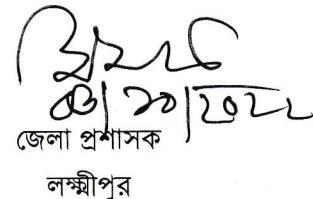 ০৩/১০/২০২২
জেলা প্রশাসক
লক্ষ্মীপুর